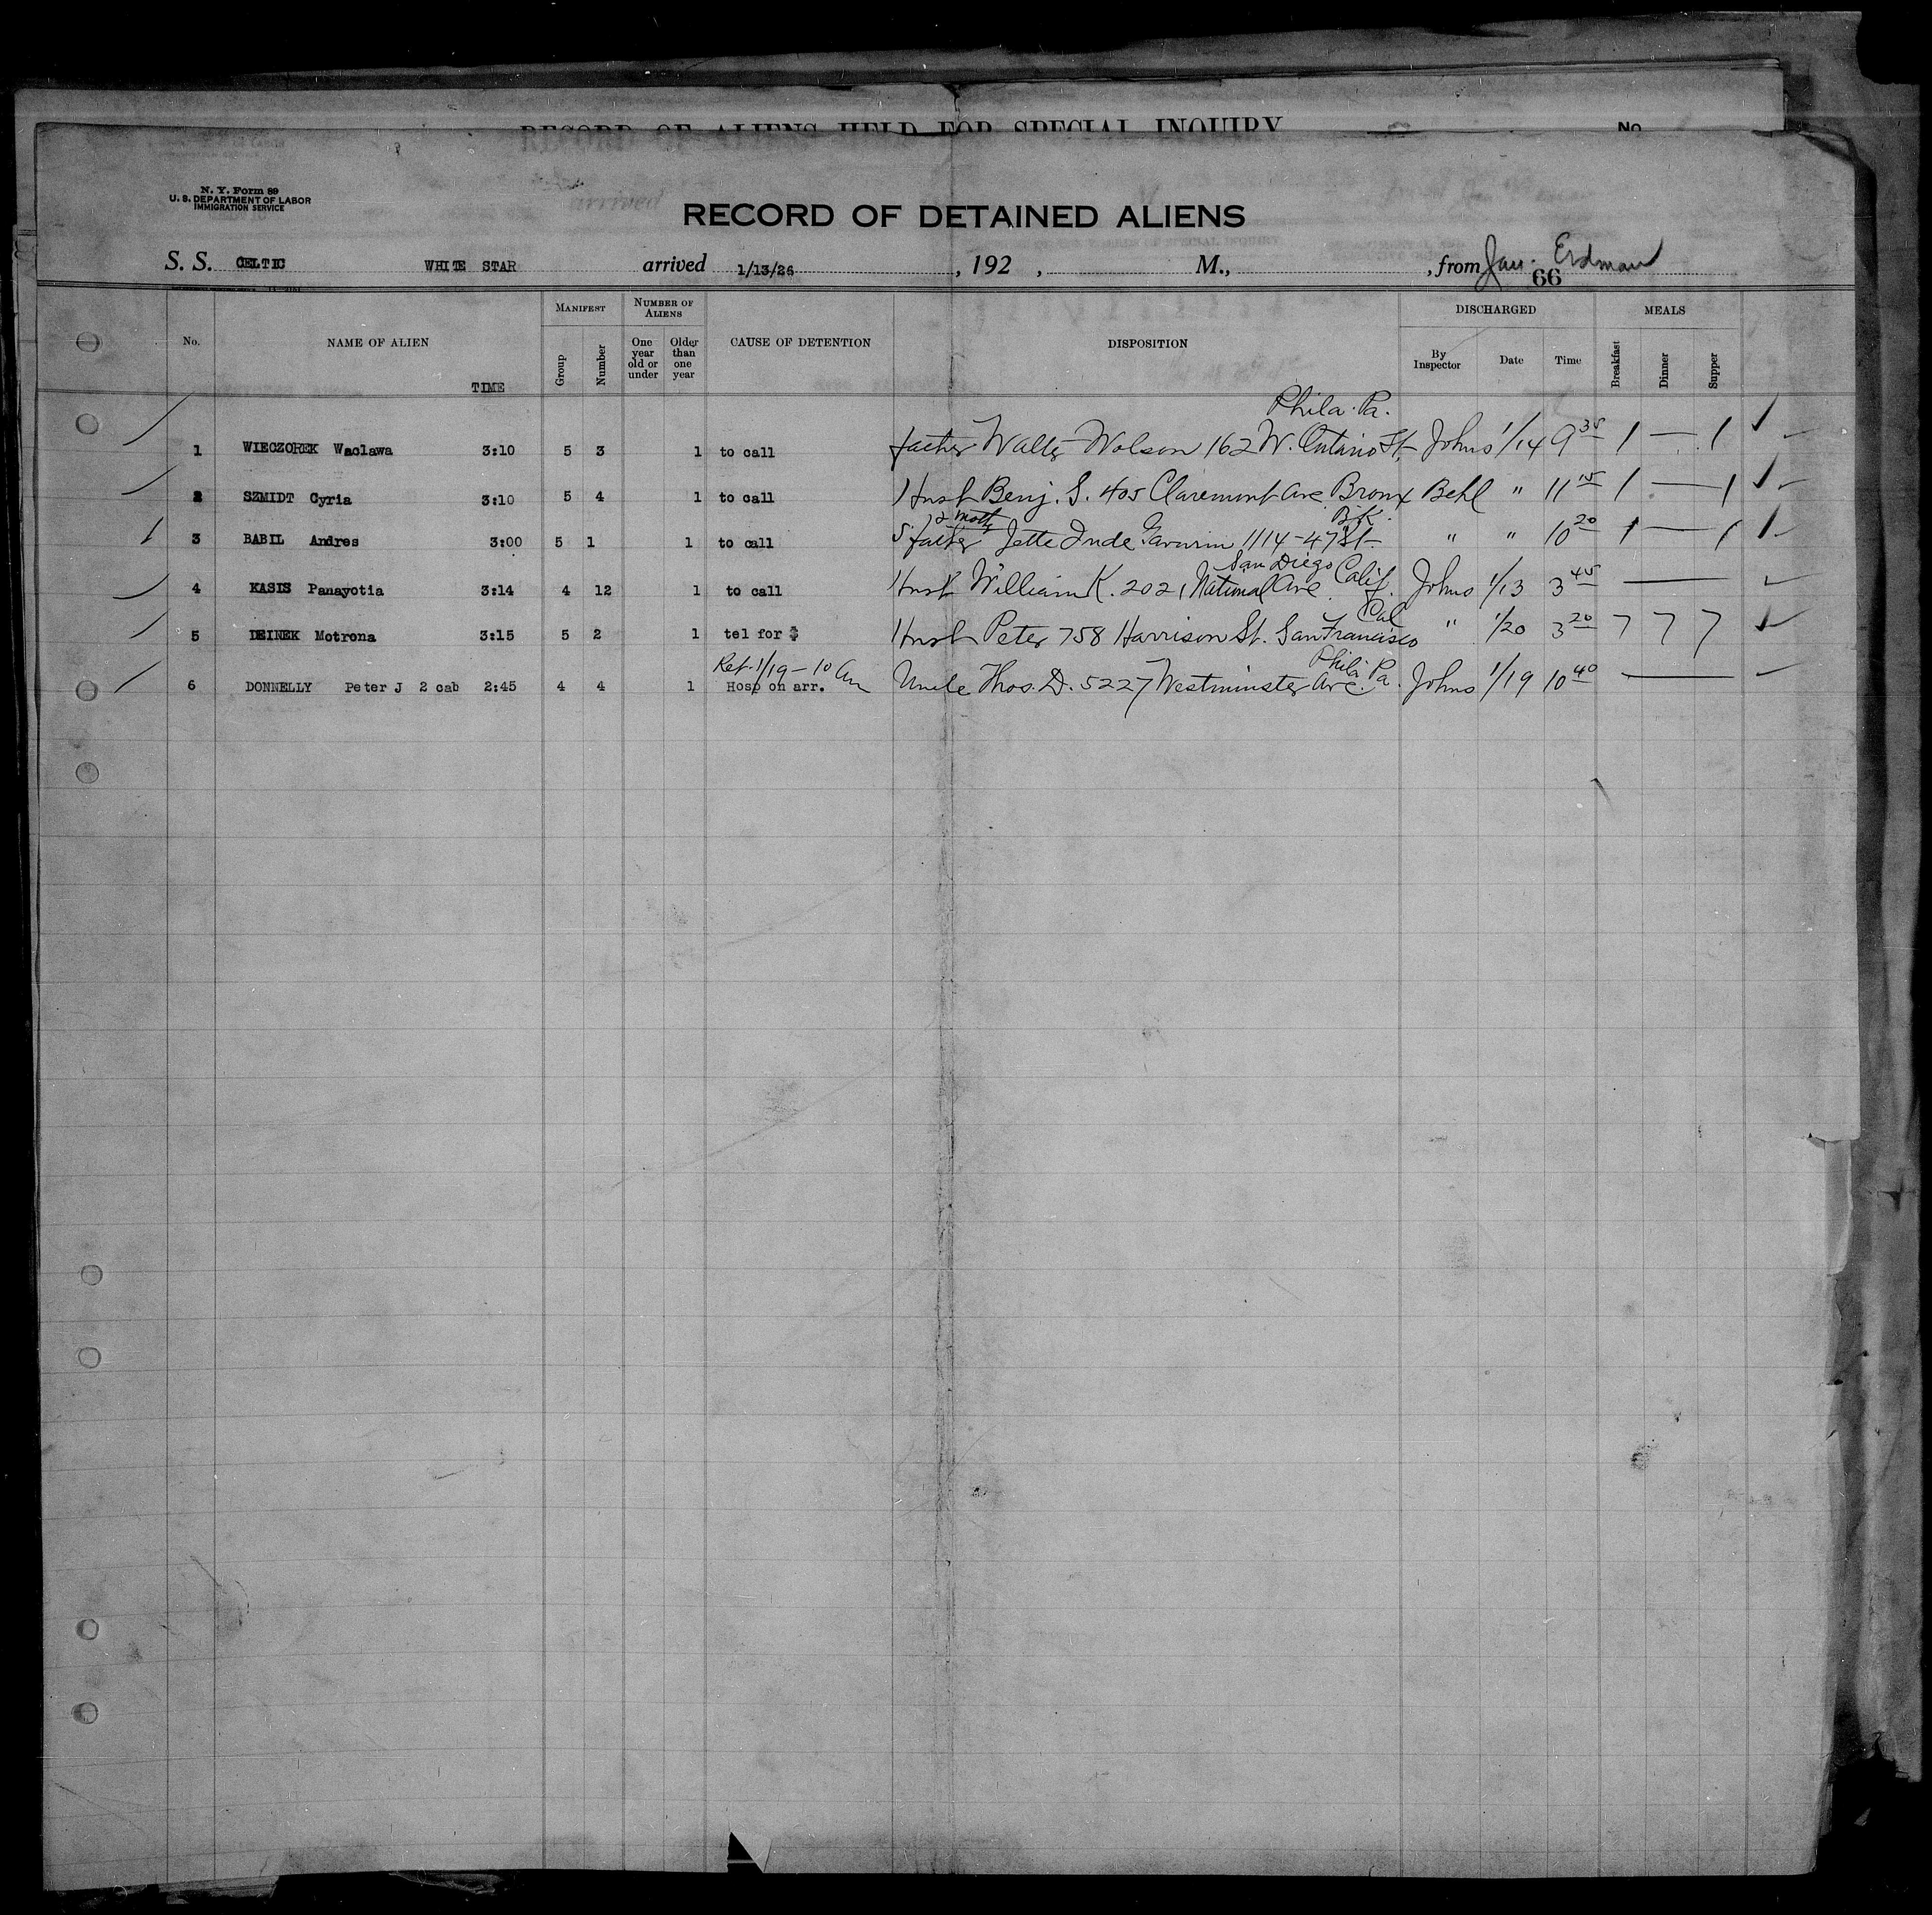 RECORD OF ALIENS HELD FOR SPECIAL INQUIRY No.
N. Y. Form 89
U. S. DEPARTMENT OF LABOR
IMMIGRATION SERVICE
RECORD OF DETAINED ALIENS
S. S. CELTIC WHITE STAR arrived 1/13/26, 192 , M., , from Jan. Erdman
66
No. NAME OF ALIEN TIME MANIFEST Group Number NUMBER OF ALIENS One year old or under Older than one year CAUSE OF DETENTION DISPOSITION DISCHARGED By Inspector Date Time MEALS Breakfast Dinner Supper
Phila. Pa.
1 WIECZOREK Waclawa 3:10 5 3 1 to call father Walter Wolson 162 W. Ontario St. Johns 1/14 9 35 1 — 1
2 SZMIDT Cyria 3:10 5 4 1 to call Husb Benj. S. 405 Claremont Ave Bronx Behl " 11 15 1 — 1
Bk.
3 BABIL Andres 3:00 5 1 1 to call father Jette 1114 - 47 St " " 10 20 1 — 1
San Diego
4 KASIS Panayotia 3:14 4 12 1 to call Husb William K. 2021 National Ave. Calif. Johns 1/13 3 45 —
Cal
5 DEINEK Motrona 3:15 5 2 1 tel for $ Husb Peter 758 Harrison St. San Francisco " 1/20 3 20 7 7 7
Ret. 1/19 - 10 Am Phila Pa.
6 DONNELLY Peter J 2 cab 2:45 4 4 1 Hosp on arr. Uncle Thos. D. 5227 Westminster Ave. Johns 1/19 10 40 —